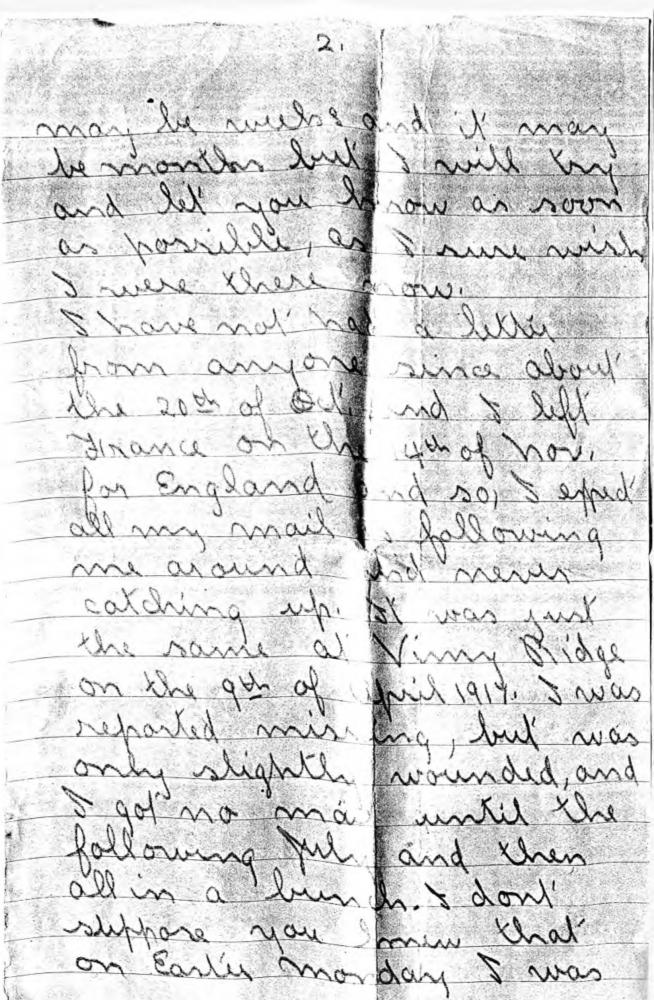 2.
may be weeks and it may
be months but I will try
and let you know as soon
as possible, as I sure wish
I were there now.
I have not had a letter
from anyone since about
the 20th of Oct. and I left
France on the 4th of Nov.
for England and so, I expect
all my mail is following
me around and never
catching up. It was just
the same at Vimy Ridge
on the 9th of April 1917. I was
reported missing, but was
only slightly wounded, and
I got no mail until the
following July and then
all in a bunch. I dont
suppose you knew that
on Easter Monday I was